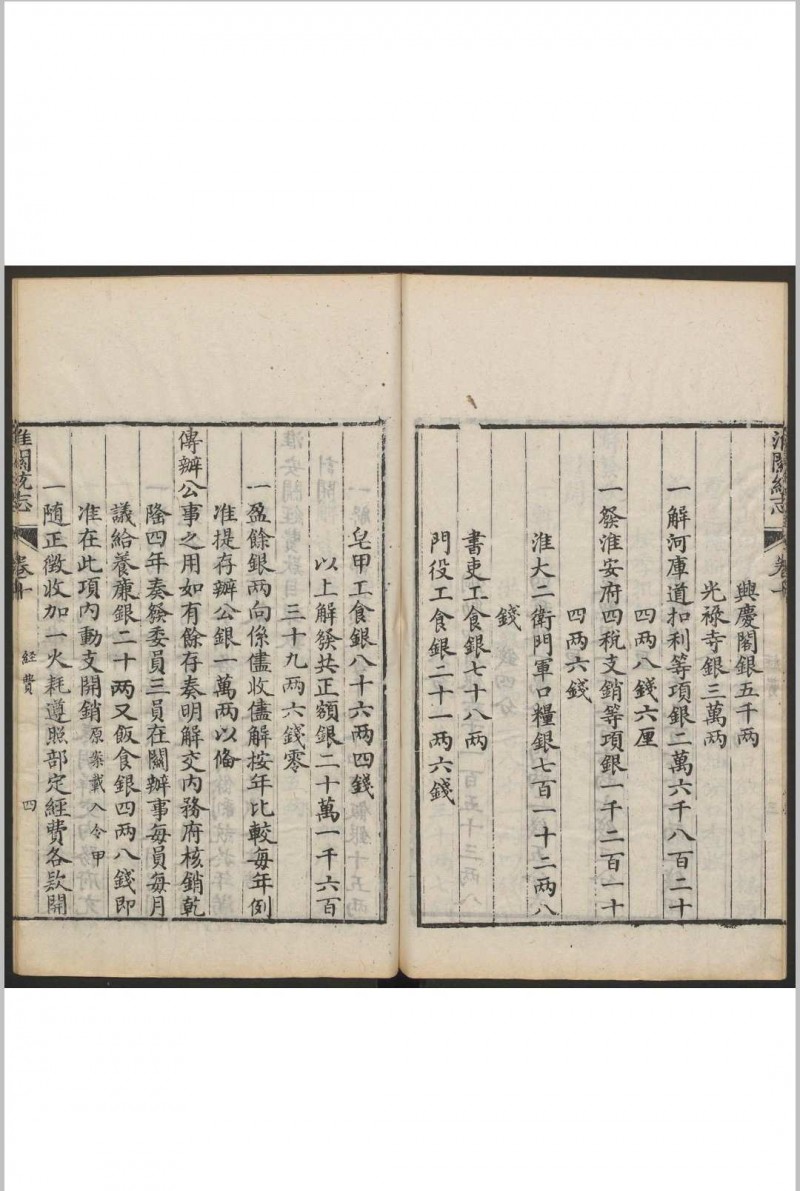 淮關統志
卷十
興慶閣銀五千兩
光祿寺銀三萬兩
一解河庫道扣利等項銀二萬六千八百二十
四两八錢六厘
一發淮安府四稅支銷等項銀一千二百一十
四两六錢
淮大二衛門軍口糧銀七百一十二两八
錢
書吏工食銀七十八两
門役工食銀二十一两六錢
皂甲工食銀八十六两四錢
以上解發共正額銀二十萬一千六百
三十九两六錢零
一盈餘銀两向係儘收儘解按年比較每年例
准提存辦公銀一萬两以備
傳辦公事之用如有餘存奏明解交内務府核銷乾
隆四年奏發委員三員在關辦事每員每月
議給養廉銀二十两又飯食銀四两八錢即
准在此項内動支開銷原案載入令甲
一隨正徵收加一火耗遵照部定經費各款開
淮關統志
卷十
經費
四